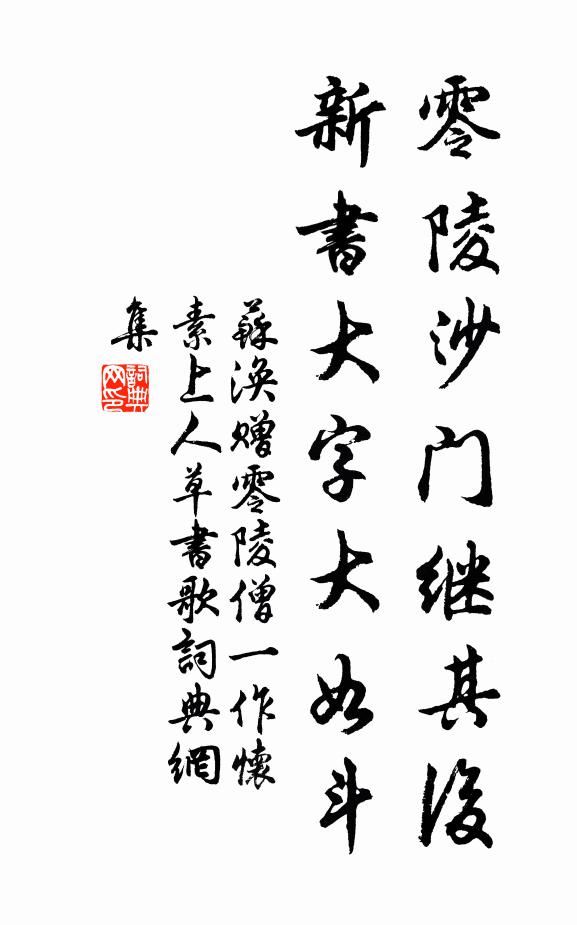 零陵沙门继其後
新書大字大如斗
蘇渙贈零陵僧一作懷
素上人草書歌詞典網
集
詞典网印